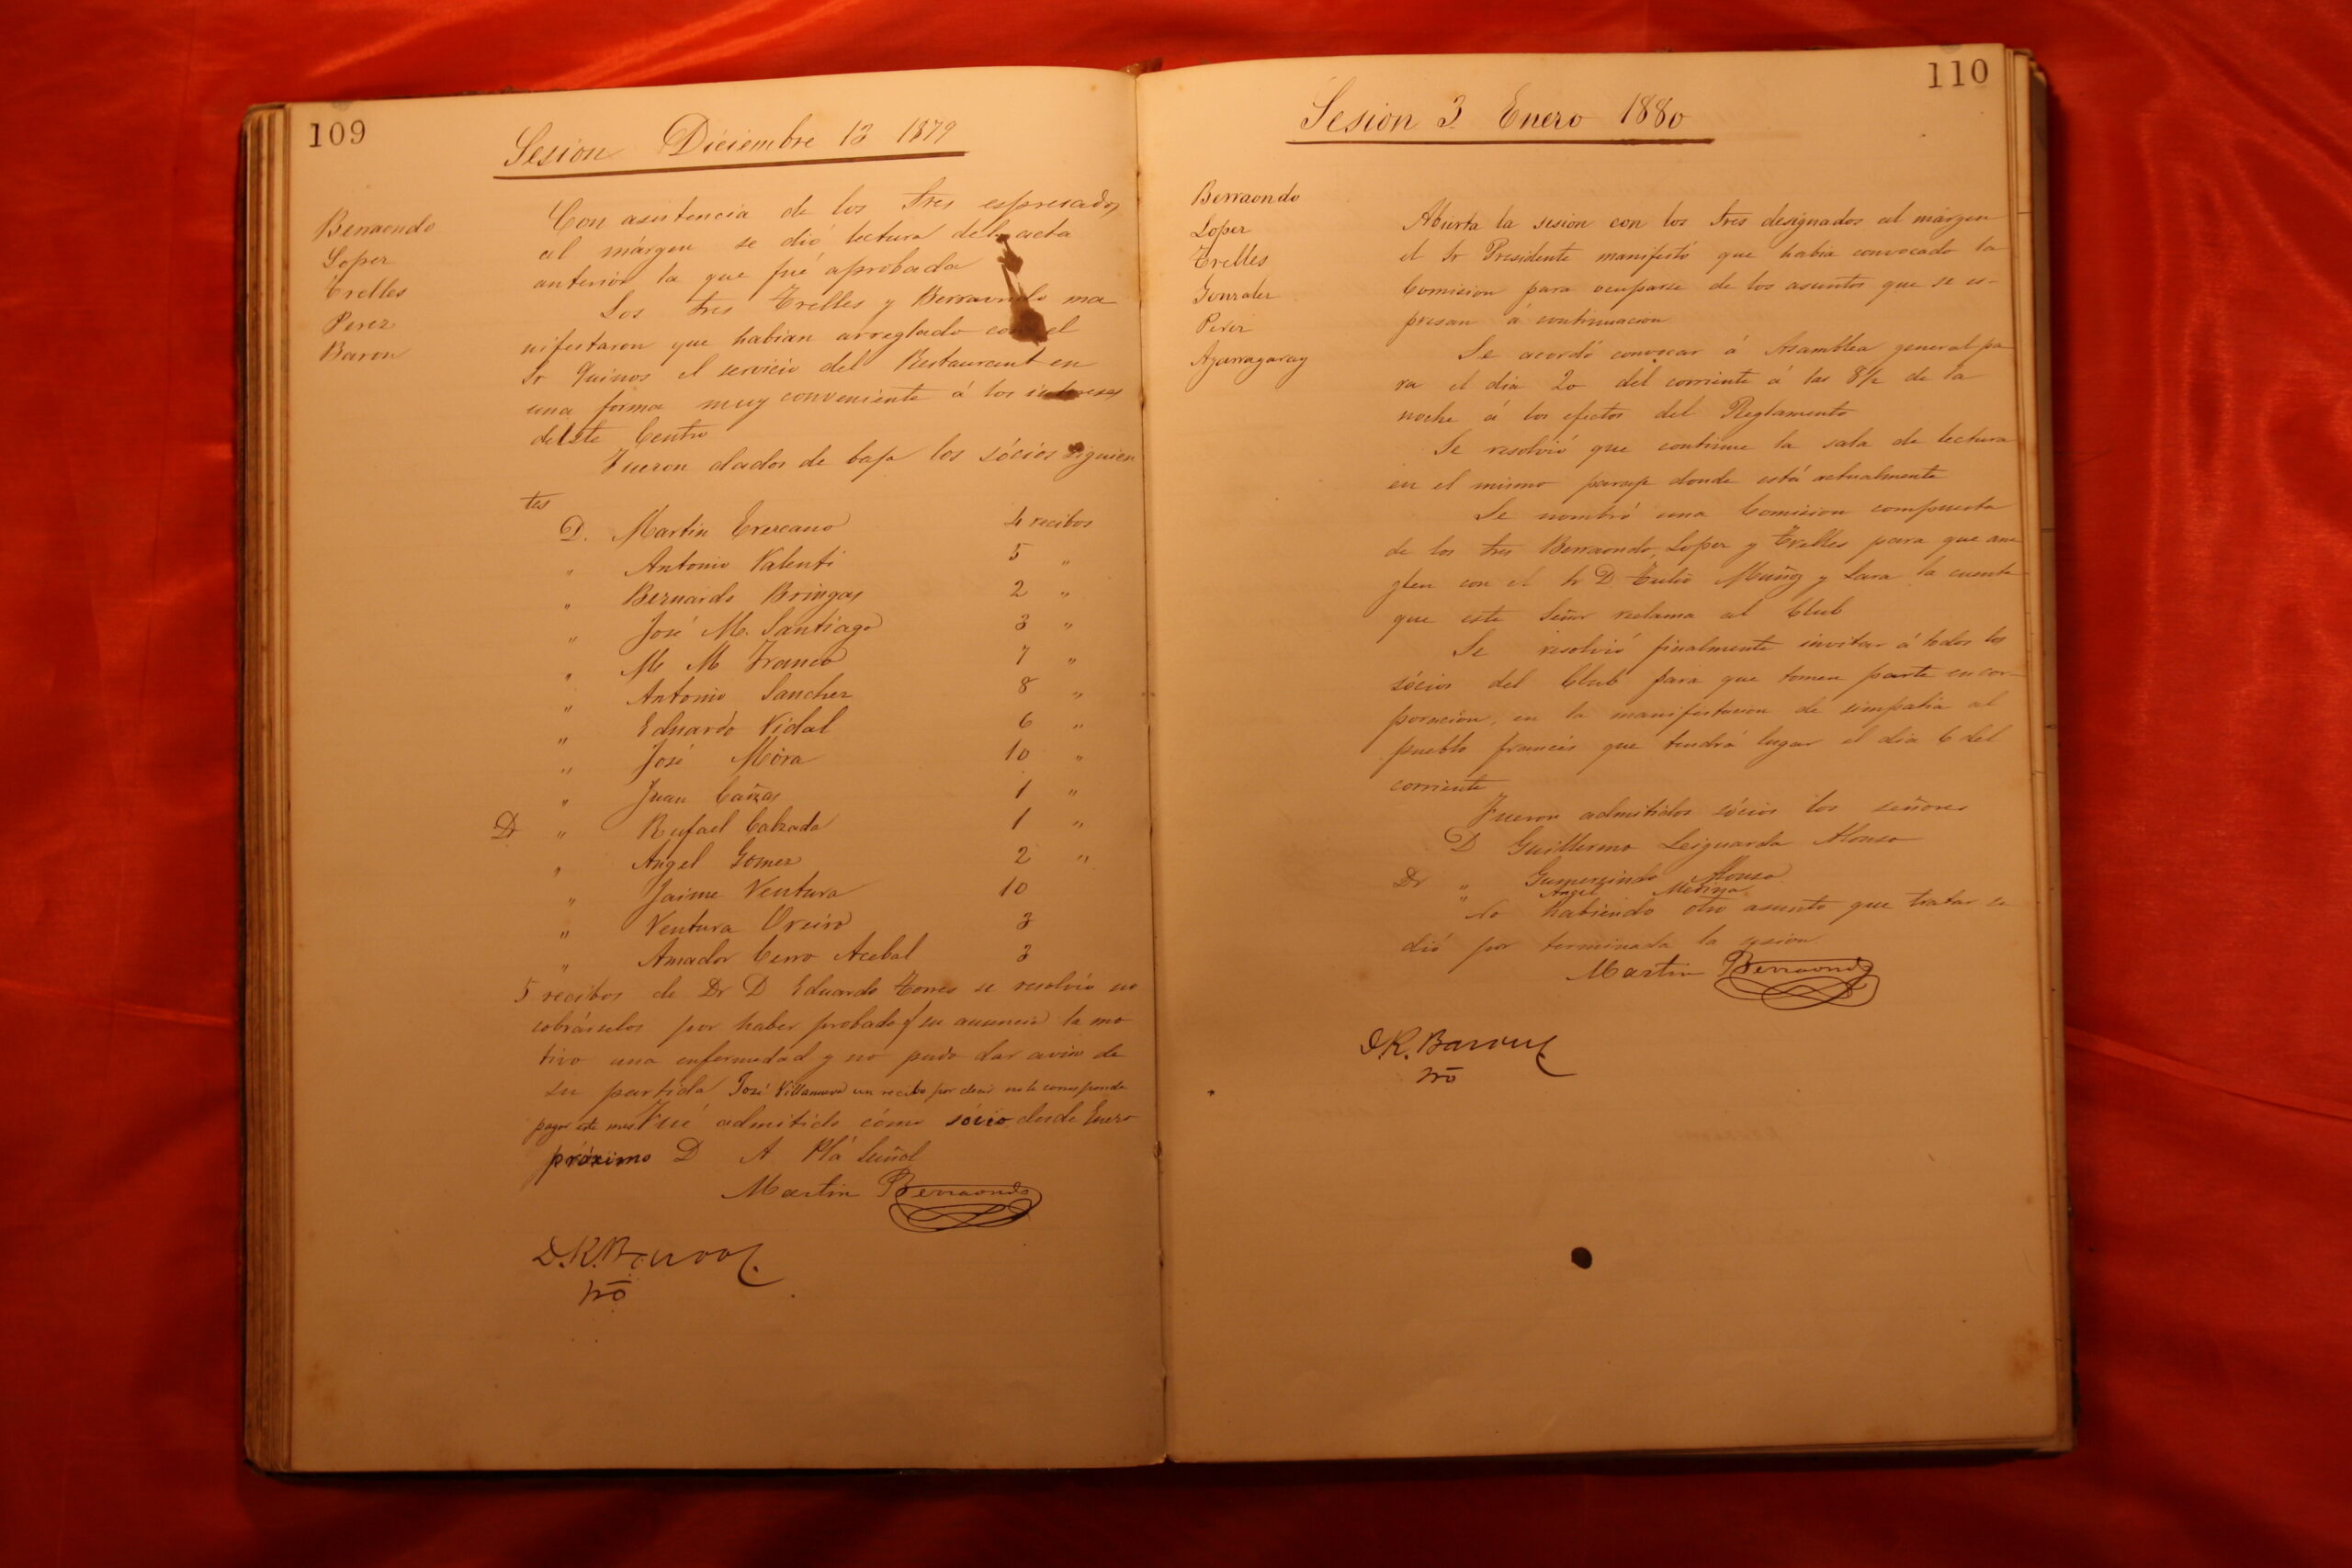 109
Sesion Diciembre 13 1879
Berraondo
Lopez
Trelles
Perez
Baron
Con asistencia de los Sres espresados
al márgen se dió lectura del acta
anterior la que fué aprobada
Los Sres Trelles y Berraondo ma
nifestaron que habian arreglado con el
Sr Quinos el servicio del Restaurant en
una forma muy conveniente á los intereses
de este Centro
Fueron dados de baja los sócios siguien
tes
D. Martin Erezcano 4 recibos
" Antonio Valenti 5 "
" Bernardo Bringas 2 "
" José M. Santiago 3 "
" M M Franco 7 "
" Antonio Sanchez 8 "
" Eduardo Vidal 6 "
" José Mora 10 "
" Juan Cañas 1 "
Dr " Rafael Calzada 1 "
" Angel Gomez 2 "
" Jaime Ventura 10
" Ventura Oreiro 3
" Amador Cerro Acebal 3
5 recibos de Dr D Eduardo Torres se resolvio no
cobrárselos por haber probado q su ausencia la mo
tivo una enfermedad y no pudo dar aviso de
su partida José Villanueva un recibo por decir no le corresponde
pagar este mes. Fué admitido cómo sócio desde Enero
próximo D A Plá Señal
Martin Berraondo
D.R. Baron
Srō
110
Sesion 3 Enero 1880
Berraondo
Lopez
Trelles
Gonzalez
Perez
Azarragaray
Abierta la sesion con los Sres designados al márgen
el Sr Presidente manifestó que habia convocado la
Comision para ocuparse de los asuntos que se es-
presan á continuacion
Se acordó convocar á Asamblea general pa
ra el dia 20 del corriente á las 8½ de la
noche á los efectos del Reglamento
Se resolvió que continue la sala de lectura
en el mismo paraje donde está actualmente
Se nombró una Comision compuesta
de los Sres Berraondo, Lopez y Trelles para que arre
glen con el Sr D Tulio Muñoz y Lara la cuenta
que este Señor reclama al Club
Se resolvió finalmente invitar á todos los
sócios del Club para que tomen parte en cor-
poracion, en la manifestacion de simpatia al
pueblo francés que tendrá lugar el dia 6 del
corriente
Fueron admitidos sócios los señores
D Guillermo Leiguarda Alonso
Dr " Gumersindo Alonso
" Angel Medina
No habiendo otro asunto que tratar se
dió por terminada la sesion
Martin Berraondo
D.R. Baron
Srō